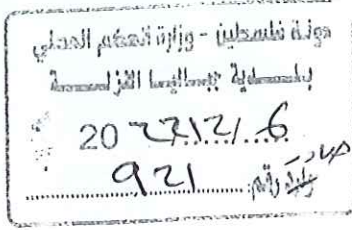 دولة فلسطين - وزارة الحكم المحلي
بلدية جباليا النزلة
20 22/12/6
صادر رقم: 921